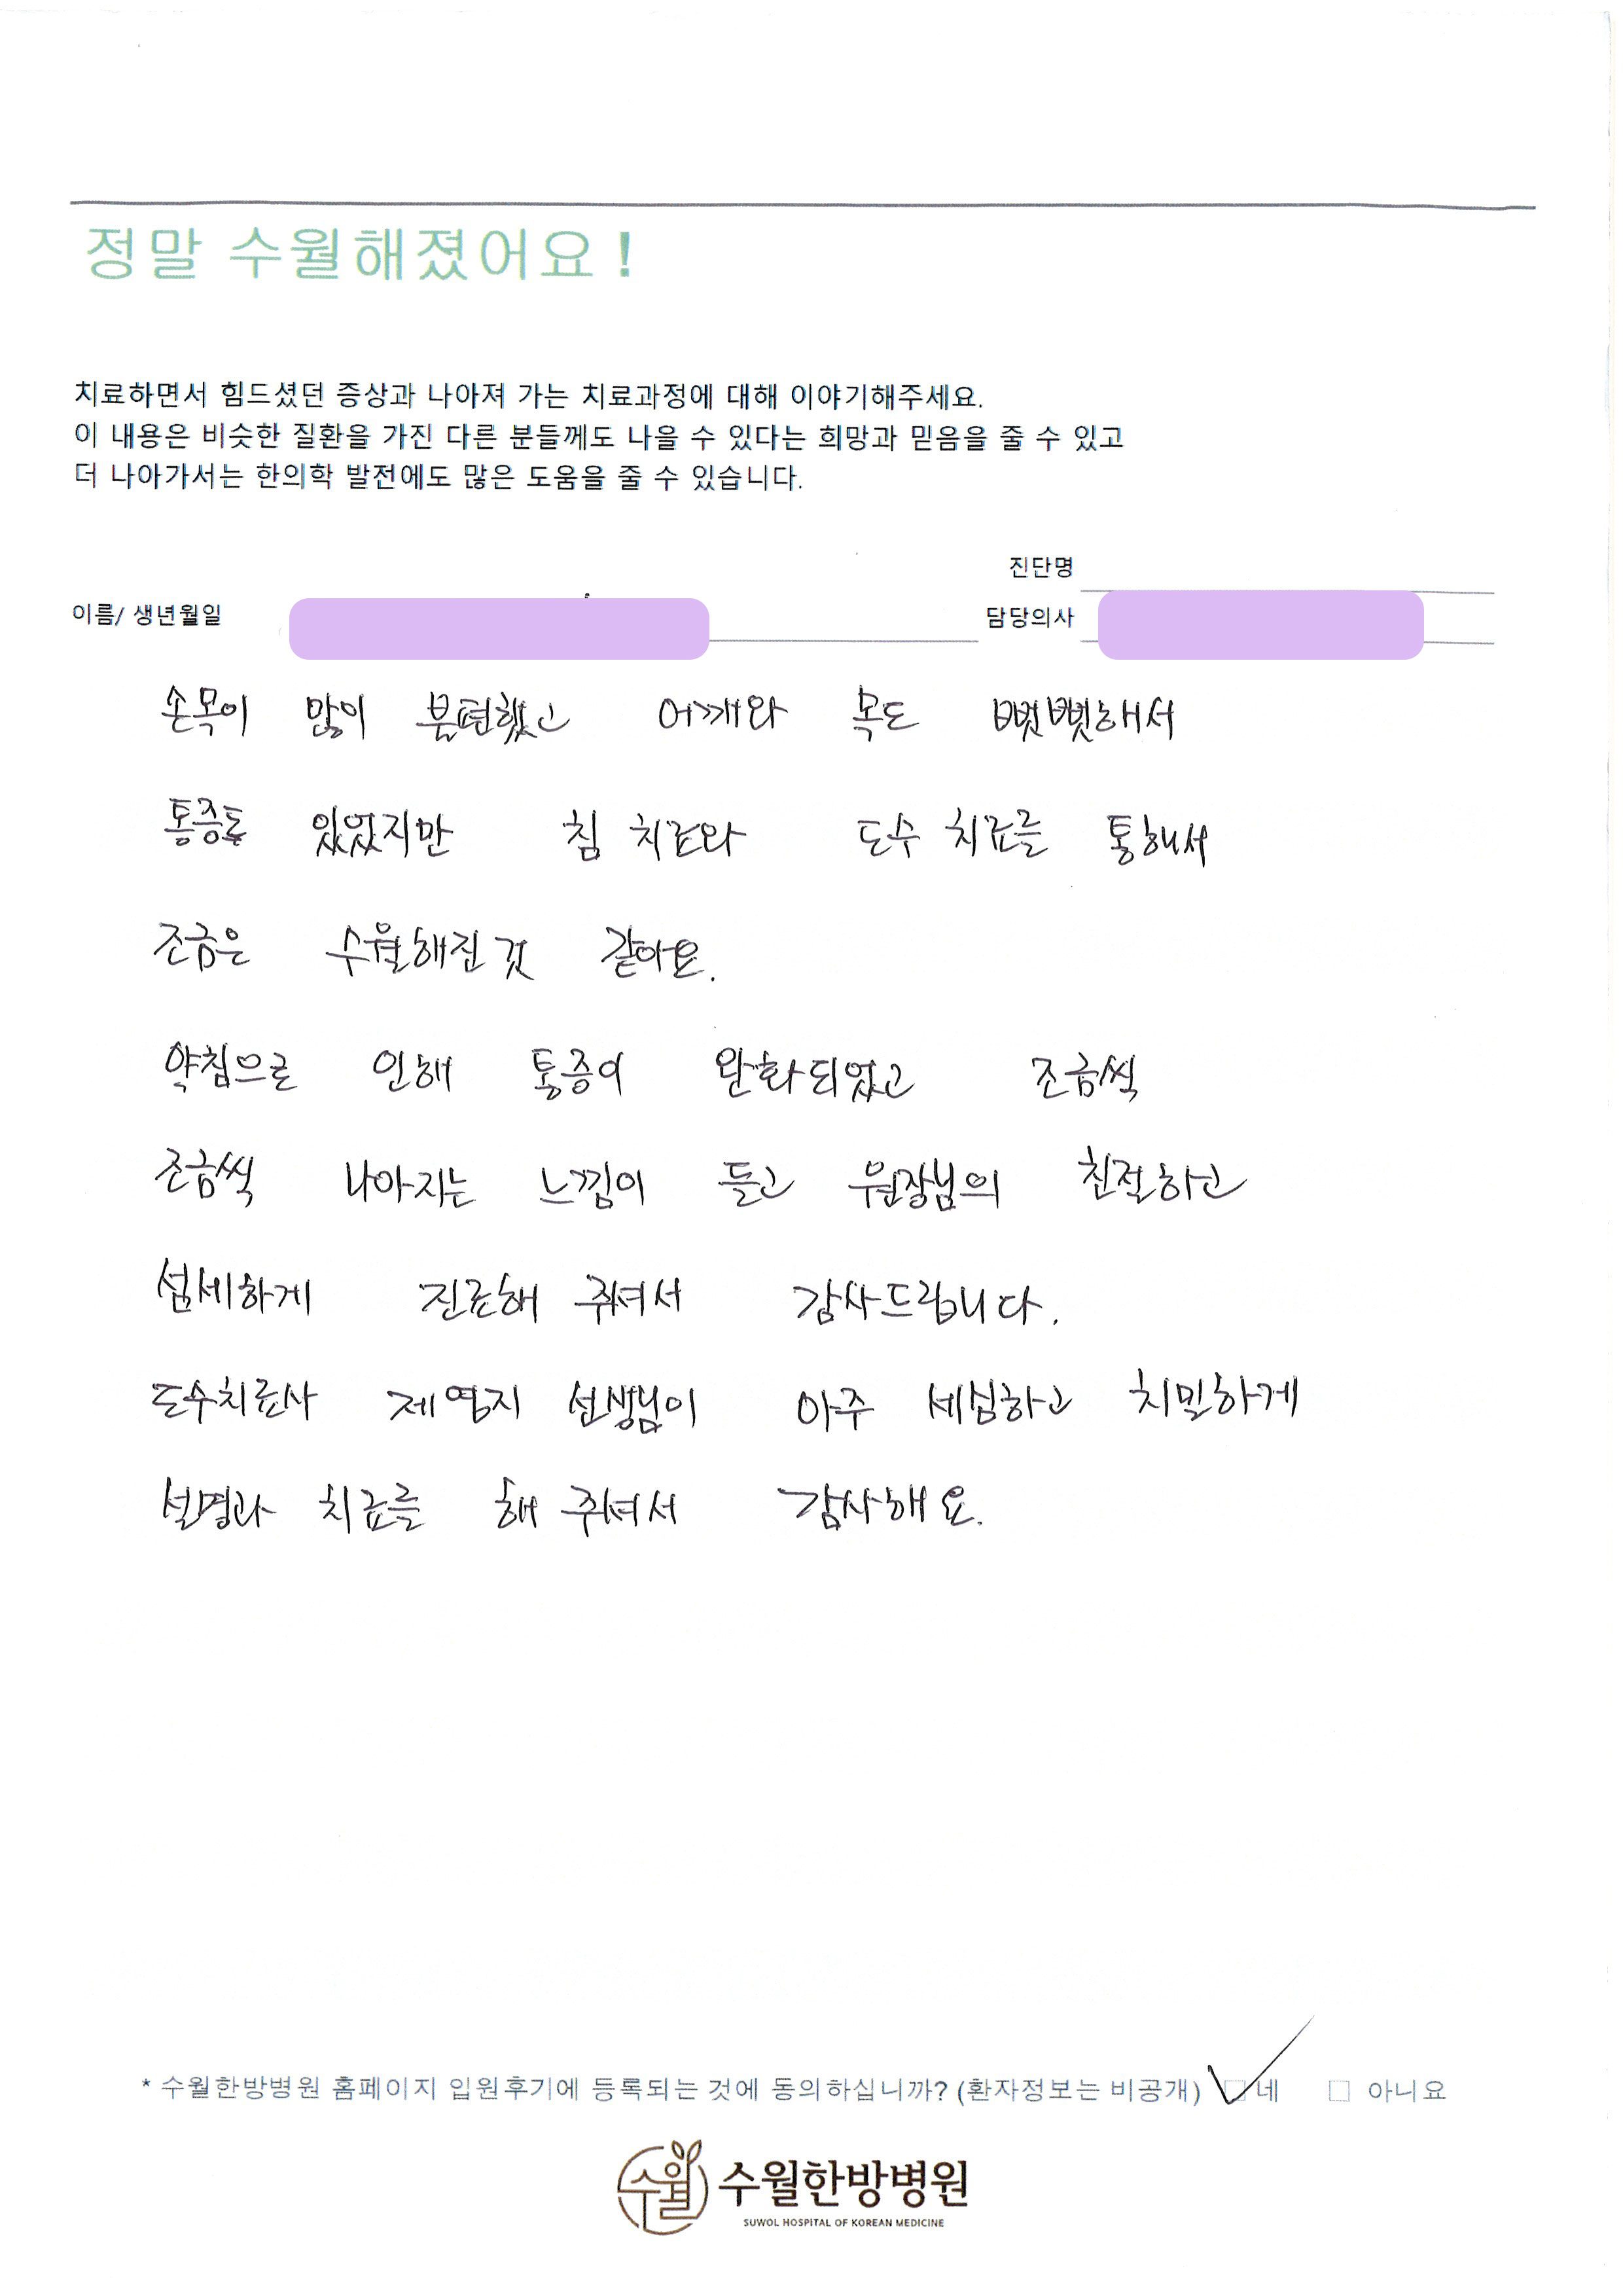 정말 수월해졌어요!
치료하면서 힘드셨던 증상과 나아져 가는 치료과정에 대해 이야기해주세요.
이 내용은 비슷한 질환을 가진 다른 분들께도 나을 수 있다는 희망과 믿음을 줄 수 있고
더 나아가서는 한의학 발전에도 많은 도움을 줄 수 있습니다.
진단명
이름/ 생년월일 담당의사
손목이 많이 불편했고 어깨와 목도 뻣뻣해서
통증도 있었지만 침 치료와 도수 치료를 통해서
조금은 수월해진 것 같아요.
약침으로 인해 통증이 완화되었고 조금씩
조금씩 나아지는 느낌이 들고 원장님의 친절하고
섬세하게 진료해 주셔서 감사드립니다.
도수치료사 제영지 선생님이 아주 세심하고 치밀하게
설명과 치료를 해 주셔서 감사해요.
* 수월한방병원 홈페이지 입원후기에 등록되는 것에 동의하십니까? (환자정보는 비공개) 네 아니요
수월 수월한방병원
SUWOL HOSPITAL OF KOREAN MEDICINE